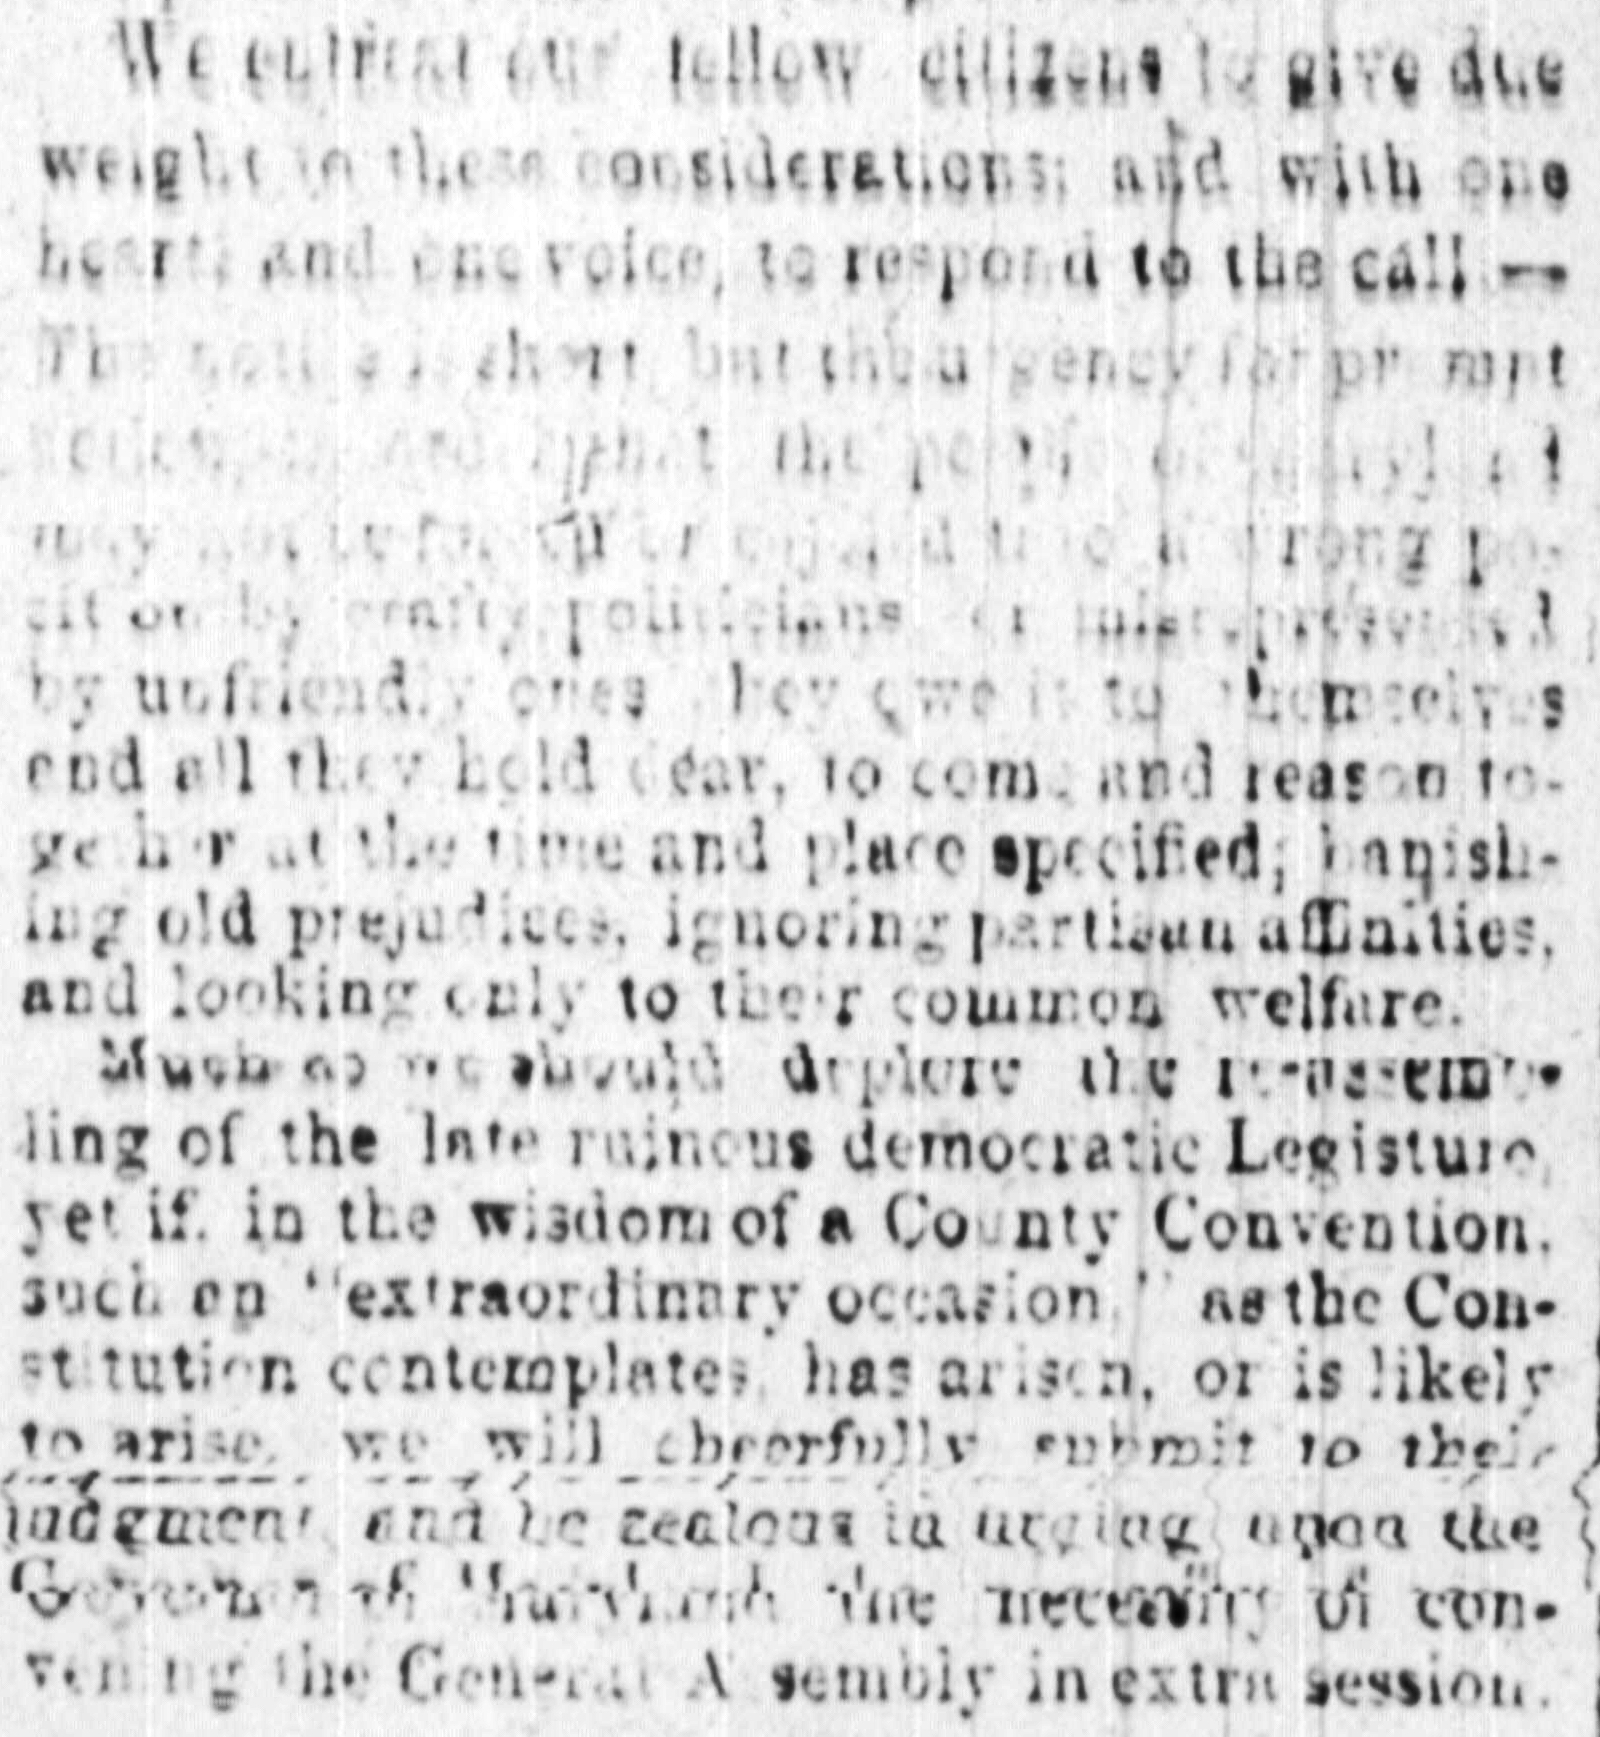 We entreat our fellow citizens to give due
weight to these considerations; and with one
heart, and one voice, to respond to the call —
The notice is short, but the urgency for prompt
the people of
may not be or a wrong po-
sition by crafty politicians or misrepresented
by unfriendly ones they owe it to themselves
and all they hold dear, to come and reason to-
gether at the time and place specified; banish-
ing old prejudices, ignoring partisan affinities,
and looking only to their common welfare.
Much as we should deplore the re-assemb-
ling of the late ruinous democratic Legisture,
yet if, in the wisdom of a County Convention,
such an "extraordinary occasion," as the Con-
stitution contemplates, has arisen, or is likely
to arise, we will cheerfully submit to their
judgment, and be zealous in urging upon the
Governor of Maryland the necessity of con-
vening the General Assembly in extra session.